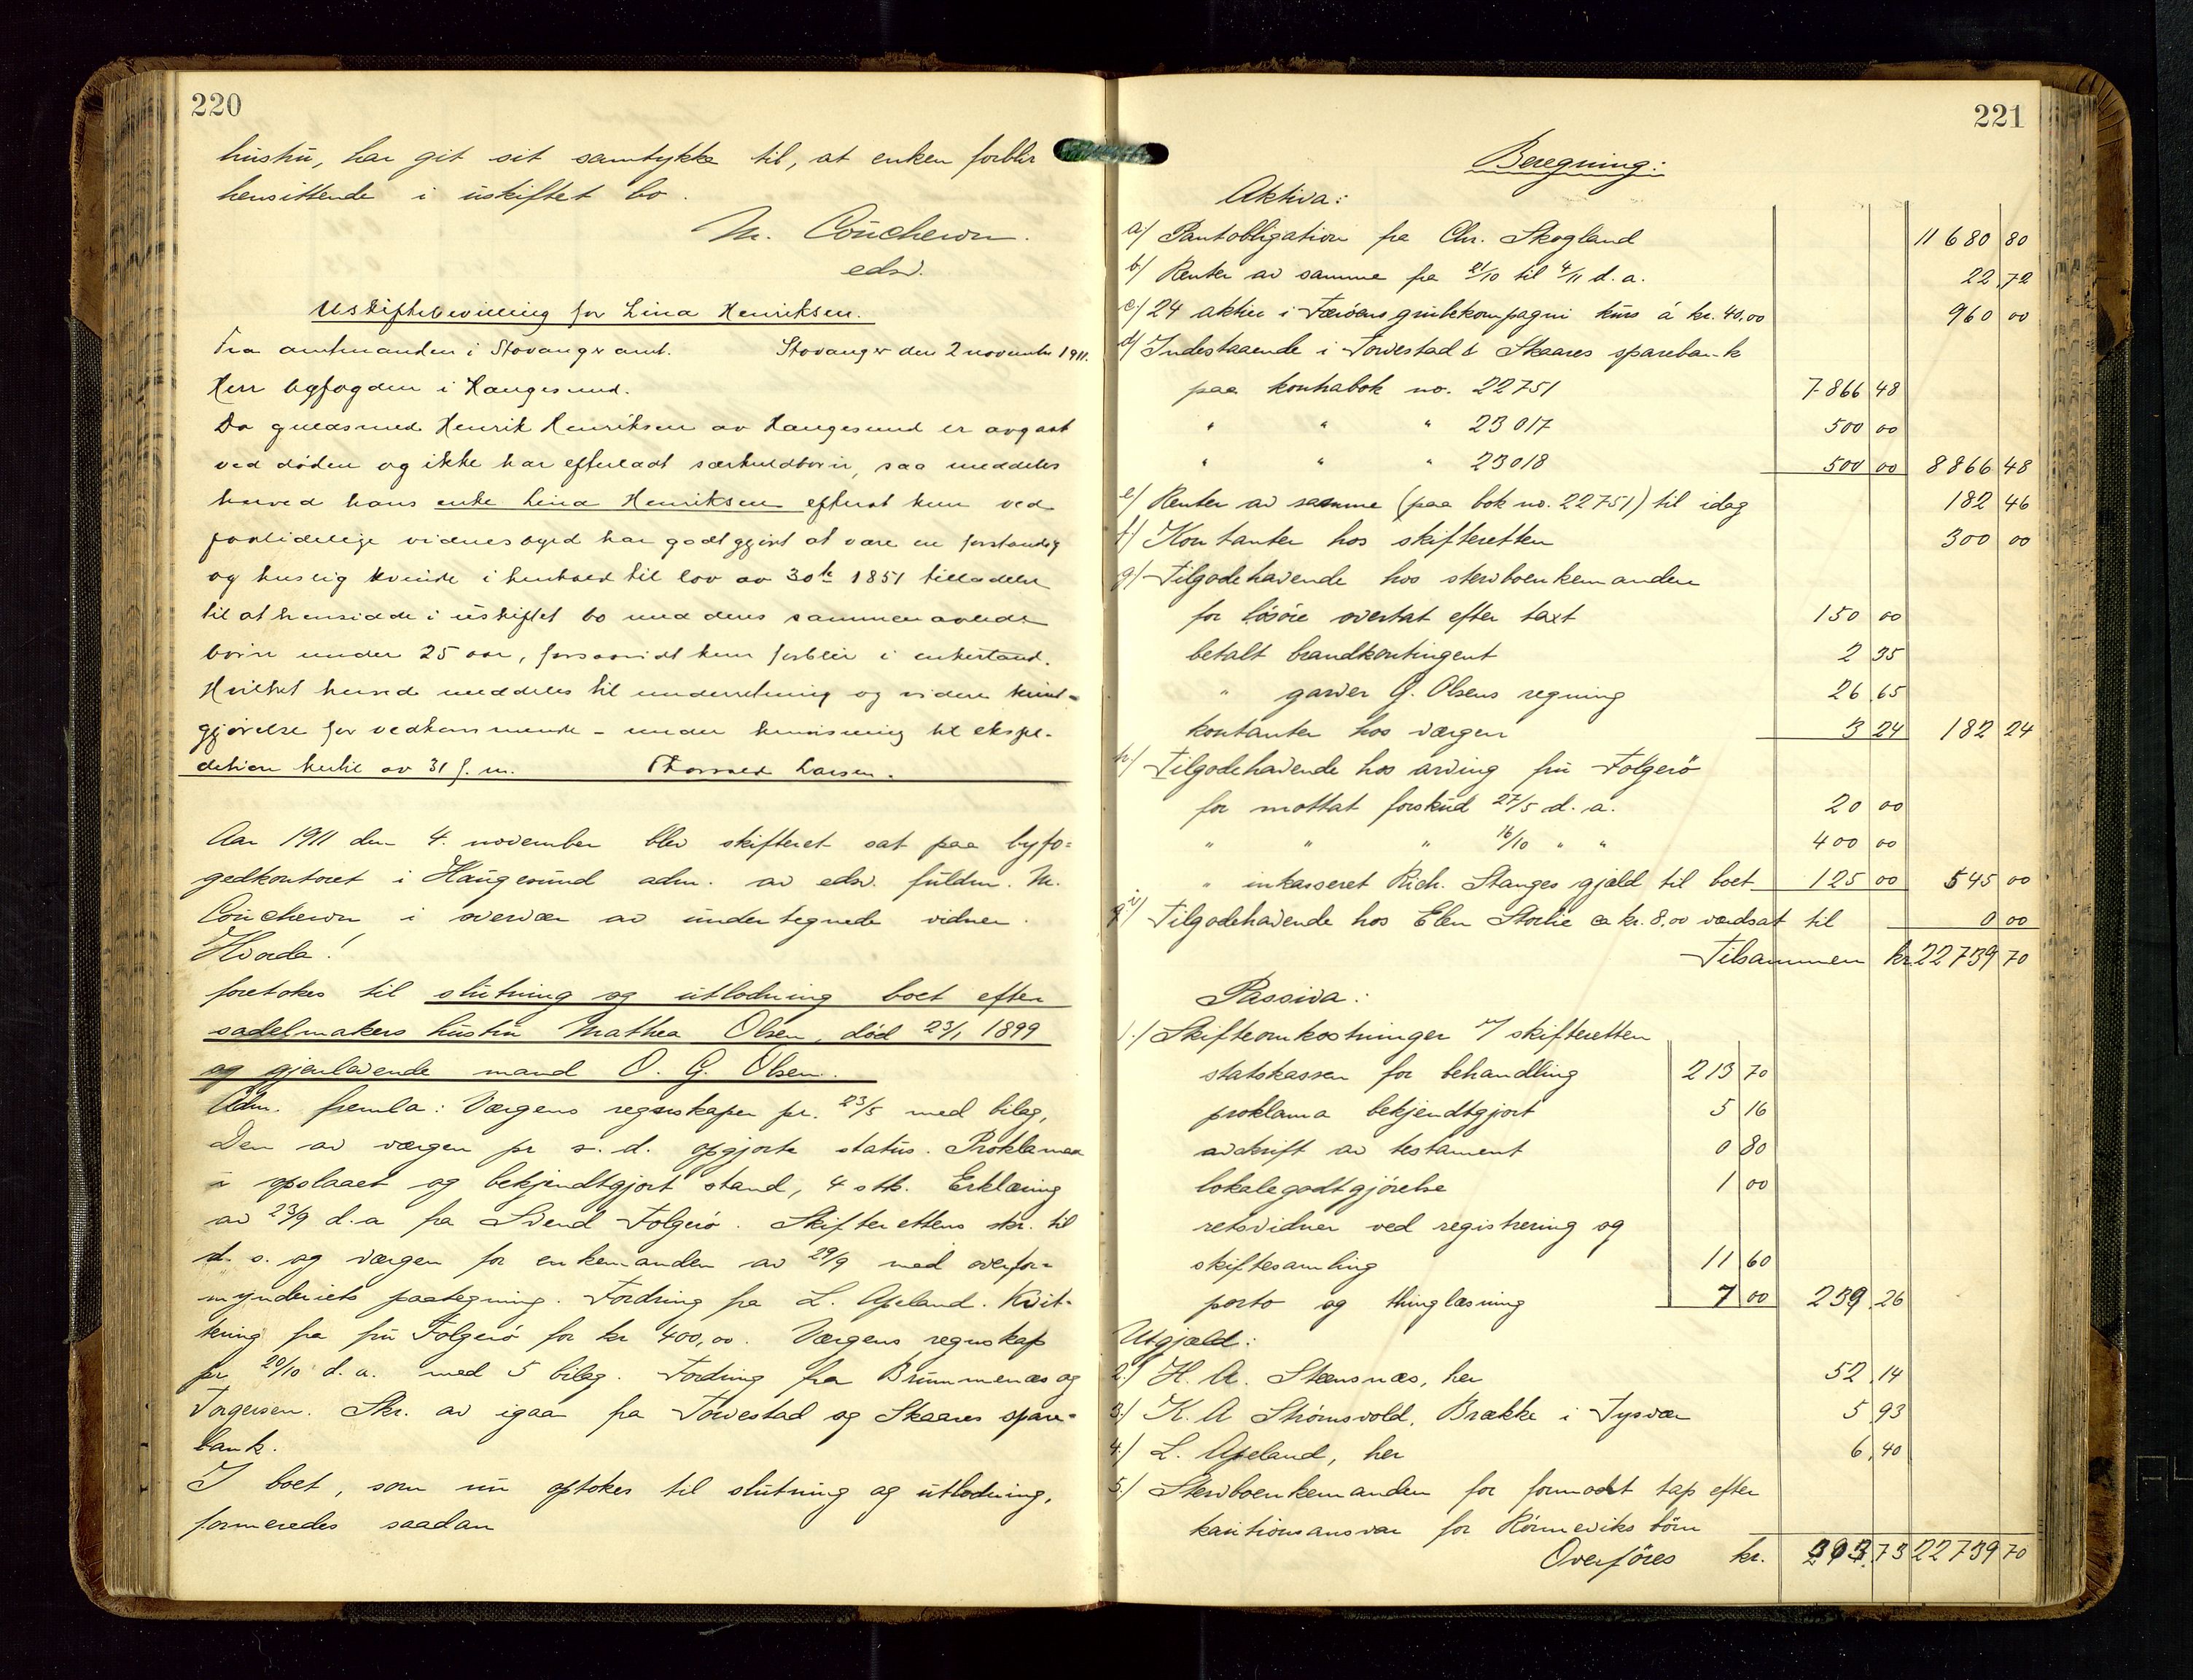 220
hustru, har git sit samtykke til, at enken forblir
hensittende i uskiftet bo.
M. Coucheron.
edsv.
Uskiftebevilling for Lina Henriksen.
Fra amtmanden i Stavanger amt. Stavanger den 2 november 1911.
Herr byfogden i Haugesund.
Da guldsmed Henrik Henriksen av Haugesund er avgaat
ved døden og ikke har efterladt særkuldbørn, saa meddeles
herved hans enke Lina Henriksen efterat hun ved
paalidelige vidnesbyrd har godtgjort at være en forstandig
og huslig kvinde i henhold til lov av 30te 1851 tilladelse
til at hensidde i uskiftet bo med deres sammenavlede
børn under 25 aar, forsaavidt hun forblir i enkestand.
Hvilket herved meddeles til underretning og videre kund-
gjørelse for vedkommende - under henvisning til ekspe-
dition hertil av 31 f. m. Thorvald Larsen.
Aar 1911 den 4. november blev skifteret sat paa byfo=
gedkontoret i Haugesund adm. av edsv. fuldm. M.
Coucheron i overvær av undertegnede vidner.
Hvorda!
foretokes til slutning og utlodning boet efter
sadelmakers hustru Mathea Olsen, død 23/1 1899
og gjenlevende mand O. G. Olsen.
Adm. fremla: Værgens regnskaper pr. 23/5 med bilag,
Den av værgen pr s. d. opgjorte status. Proklamaa
i opslaaet og bekjendtgjort stand, 4 stk. Erklæring
av 23/9 d.a fra Svend Folgerø. Skifterettens skr. til
d. s. og værgen for enkemanden av 29/9 med overfor=
mynderiets paategning. Fordring fra L. Apeland. Kvit-
tering fra fru Folgerö for kr 400,00. Værgens regnskap
pr 20/10 d. a. med 5 bilag. Fordring fra Brummenæs og
Torgersen. Skr. av igaar fra Torvestad og Skaares spare=
bank.
I boet, som nu optokes til slutning og utlodning,
formeredes saadan
221
Beregning:
Aktiva:
a/ Pantobligation fra Chr. Skogland 11680 80
b/ Renter av samme fra 21/10 til 4/11 d. a. 22 72
c/ 24 aktier i Færöens grubekompagni kurs á kr. 40,00 960 00
d/ Indestaaende i Torvestad & Skaares sparebank
paa kontrabok no. 22751 7866 48
" " " 23017 500 00
" " " 23018 500 00 8866 48
e/ Renter av samme (paa bok no. 22751) til idag 182 46
f/ Kontanter hos skifteretten 300 00
g/ Tilgodehavende hos stervboenkemanden
for lösöre overtat efter taxt 150 00
betalt brandkontingent 2 35
" garver G. Olsens regning 26 65
kontanter hos værgen 3 24 182 24
h/ Tilgodehavende hos arving fru Folgerö
for mottat forskud 27/5 d. a. 20 00
" " " 16/10 " " 400 00
" inkasseret Rich. Stanges gjæld til boet 125 00 545 00
i/ Tilgodehavende hos Elen Storlie ca kr. 8,00 værdsat til 0 00
Tilsammen kr 22739 70
Passiva:
1./ Skifteomkostninger v/ skifteretten
statskassen for behandling 213 70
proklama bekjendtgjort 5 16
avskrift av testament 0 80
lokalegodtgjörelse 1 00
retsvidner ved registrering og
skiftesamling 11 60
porto og thinglæsning 7 00 239 26
Utgjæld:
2./ H. A. Steensnæs, her 52 14
3./ K. A Strömsvold, Brække i Tysvær 5 93
4./ L. Apeland, her 6 40
5./ Stervboenkemanden for formodet tap efter
kautionsansvar for Rönneviks börn
Overföres kr. 303 73 22739 70